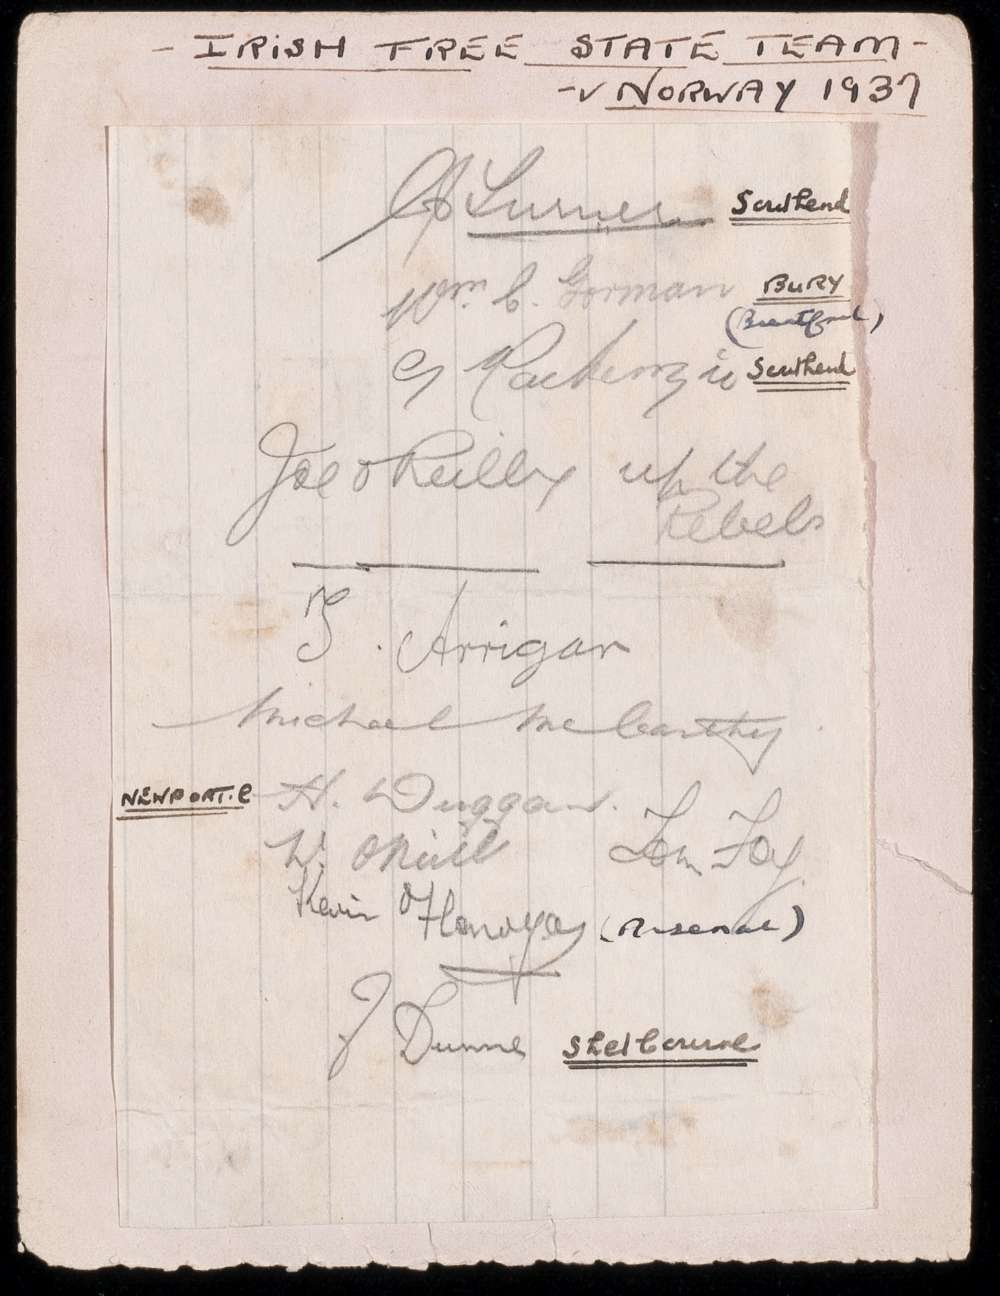 - IRISH FREE STATE TEAM -
- v NORWAY 1937
CJ Turner Southend
Wm. C. Gorman BURY
(Brentford)
G Mackenzie Southend
Joe O Reilly up the
Rebels
T. Arrigan
Michael McCarthy
NEWPORT.C H. Duggan.
W. O'Neill Tom Foy
Kevin O'Flanagan (Arsenal)
J Dunne Shelbourne